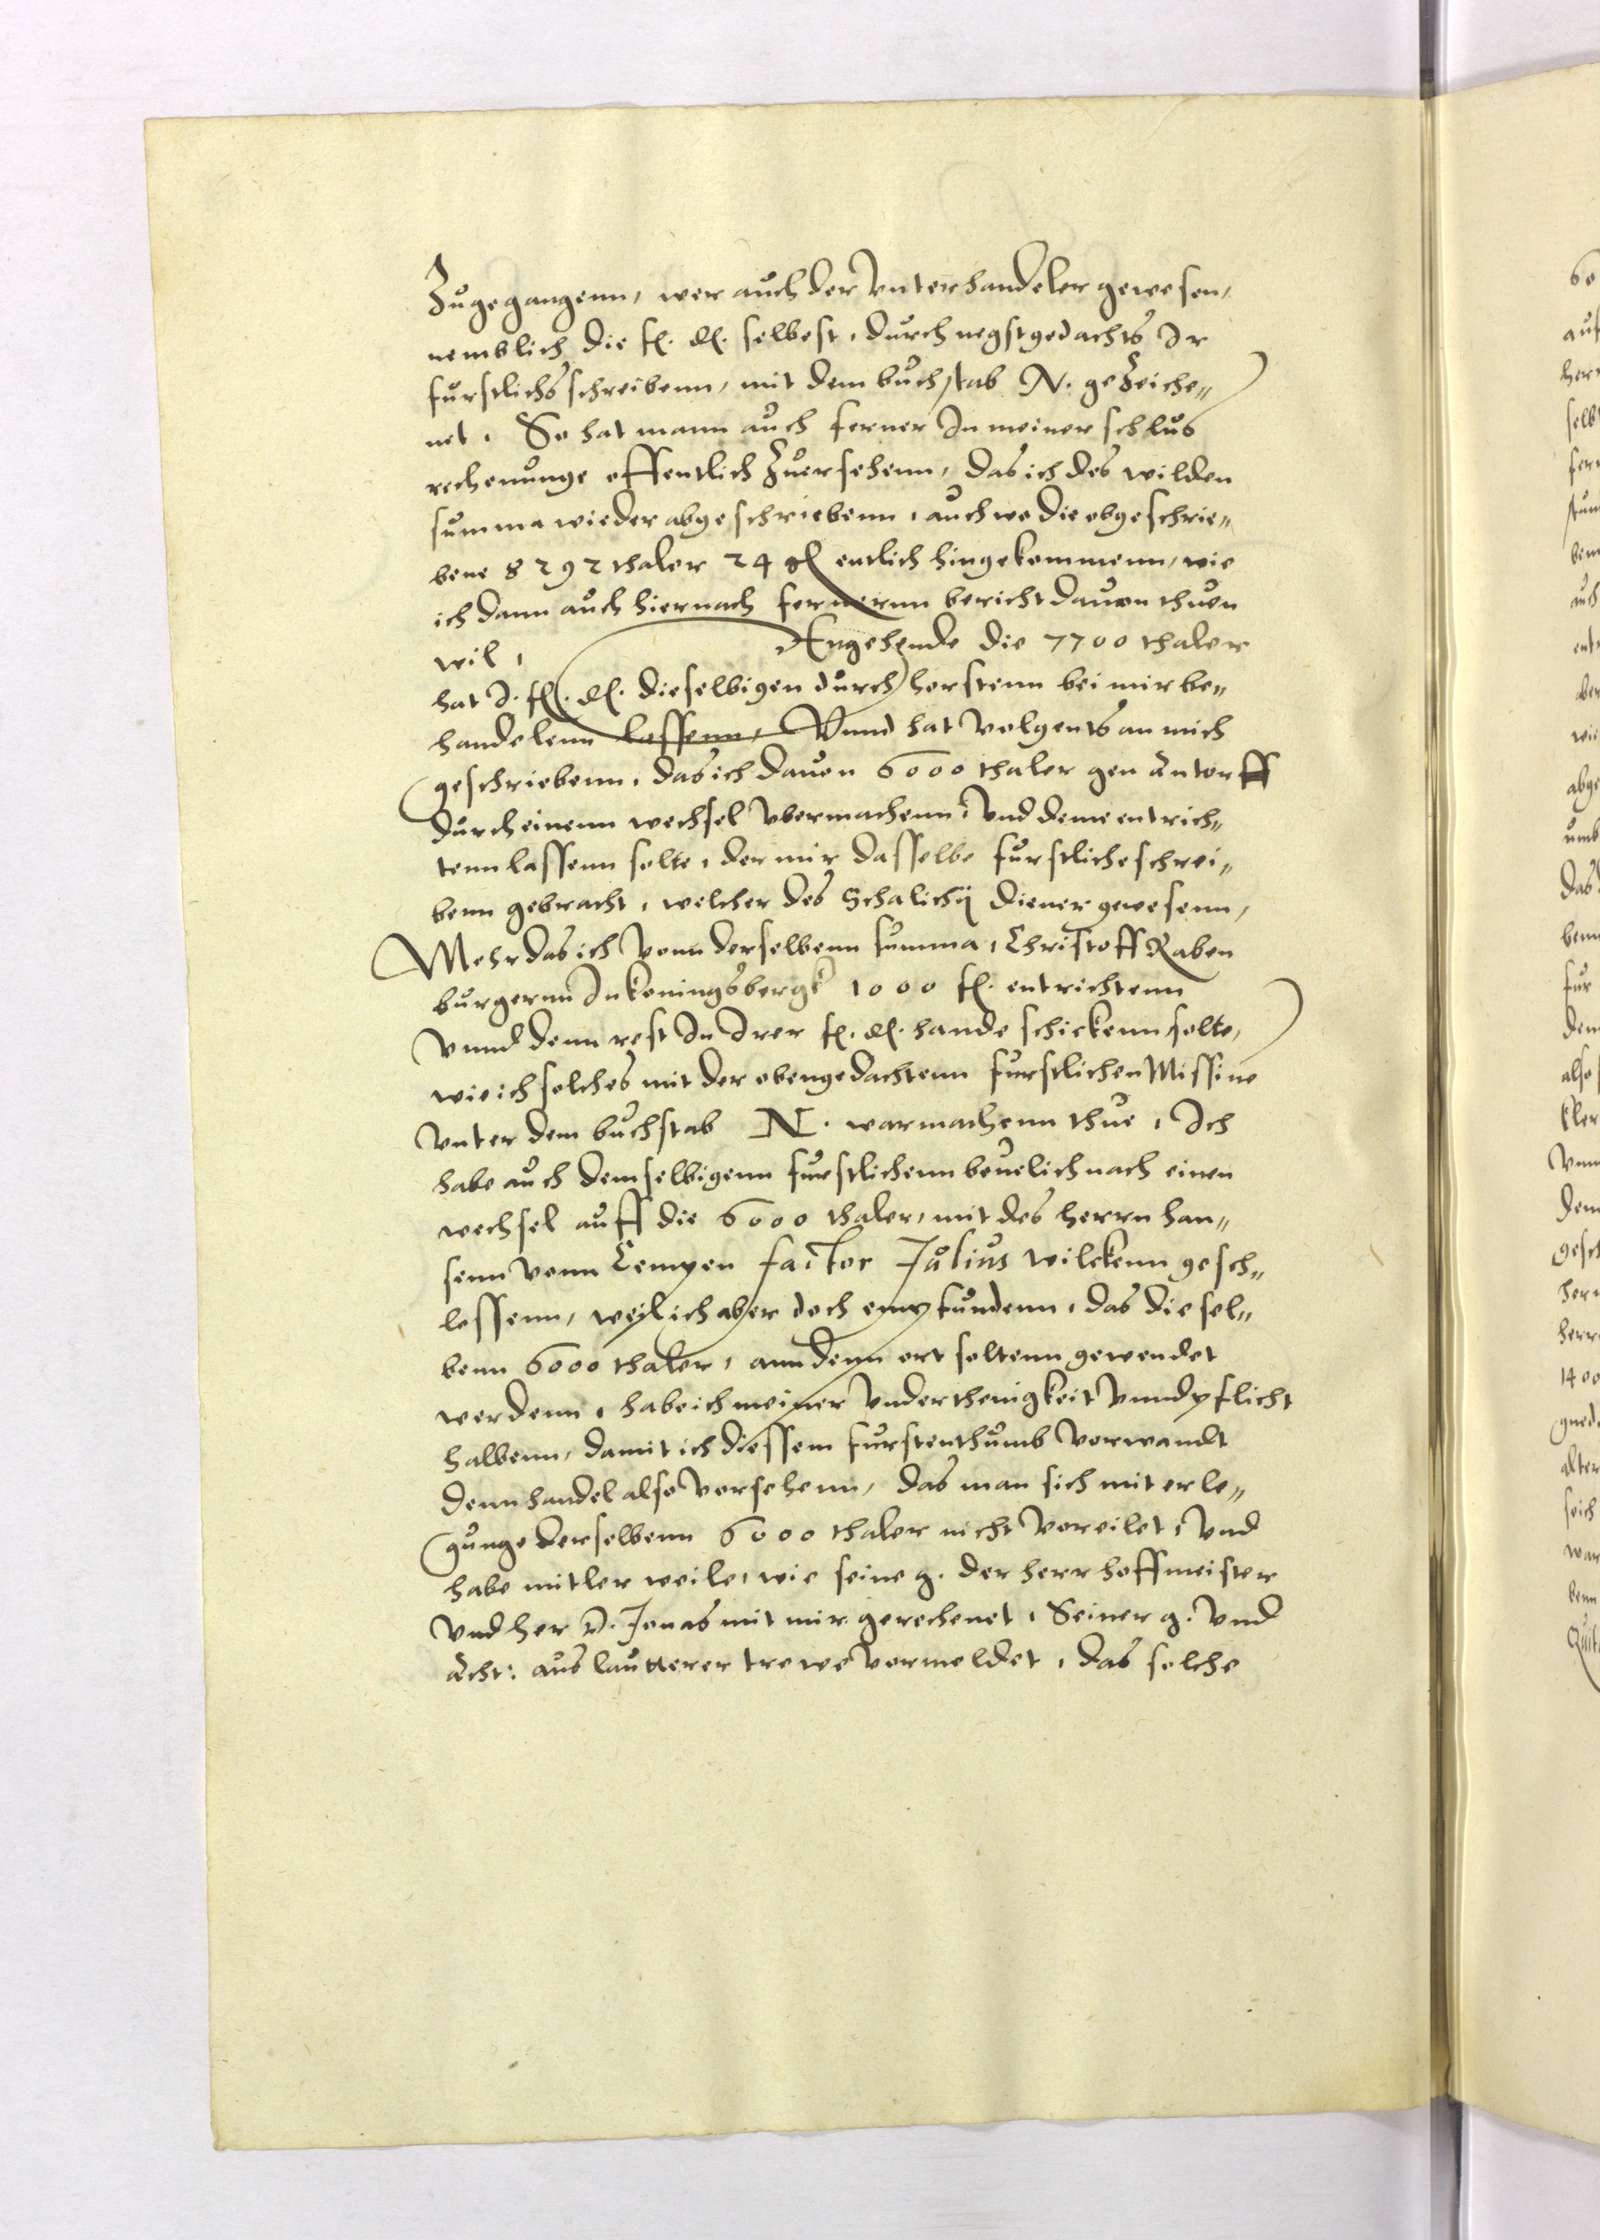 Zugegangenn, wer auch der Vnterhandeler gewesen,
nemblich die f. d. selbest, durch negstgedachts Ir
furstlichs schreibenn, mit dem buchstab N. geZeiche„
net, So hat mann auch ferner In meiner schlus
rechenunge offentlich Zuersehenn, das ich des wilden
summa wieder abgeschriebenn, auch wo die obgeschrie„
bene 8292 thaler 24 gl entlich hingekommenn, wie
ich dann auch hiernach fernernn bericht dauon thuen
wil, Angehende die 7700 thaler
hat I. f. d. dieselbigen durch horstenn bei mir be„
handelenn lassenn, Vnnd hat volgents an mich
geschriebenn, das ich dauon 6000 thaler gen Antorff
durch einenn wechsel vbermachenn, Vnd deme entrich„
tenn lassenn solte, der mir dasselbe furstliche schrei„
benn gebracht, welcher des Schalichij diener gewesenn,
Mehr das ich vonn derselbenn summa, Christoff Raben
burgernn In konningsbergk 1000 fl. entrichtenn
vnnd denn rest In Irer f. d. hande schickenn solte,
wie ich solches mit der obengedachtenn furstlichen Missiue
vnter dem buchstab N. warmachenn thue, Ich
habe auch demselbigenn furstlichenn beuelich nach einen
wechsel auff die 6000 thaler, mit des herrn han„
senn vonn Lempen factor Julius wilckenn gesch„
lossenn, weil ich aber doch empfundenn, das diesel„
benn 6000 thaler, ann denn ort soltenn gewendet
werdenn, habe ich meiner vnderthenigkeit vnnd pflicht
halbenn, damit ich diessem furstenthumb vorwandt
denn handel also vorsehenn, das man sich mit erle„
gunge derselbenn 6000 thaler nicht voreilet, Vnd
habe mitler weile, wie seine g. der herr hoffmeister
vnd her D. Jonas mit mir gerechenet, Seiner g. vnd
Acht: aus lautterer trewe vormeldet, das solche